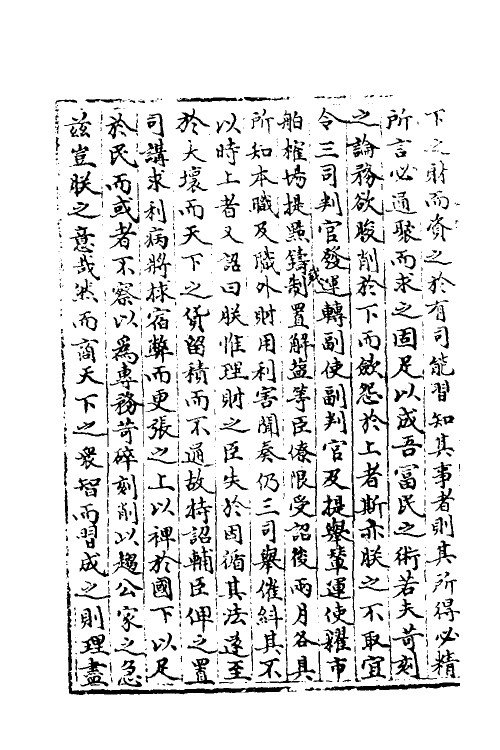 下之財而資之於有司能習知其事者則其所得必精
所言必通聚而求之固足以成吾富民之術若夫苛刻
之論務欲朘削於下而斂怨於上者斯亦朕之不取宜
令三司判官發運轉副使副判官及提舉輦運使糴市
舶榷場提點鑄制置解盐等臣僚限受詔後兩月各具
所知本職及職外財用利害聞奏仍三司舉催糾其不
以時上者又詔曰朕惟理財之臣失於因循其法遂至
於大壞而天下之貨留積而不通故特詔輔臣俾之置
司講求利病將捄宿弊而更張之上以裨於國下以足
於民而或者不察以為專務苛碎刻削以趨公家之急
茲豈朕之意哉然而商天下之衆智而習成之則理盡